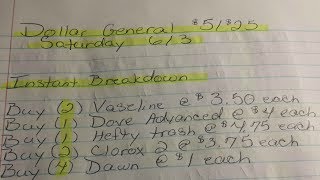 Dollar General $5/$25
Saturday 6/3
Instant Breakdown
Buy (2) Vaseline @ $3.50 each
Buy (1) Dove Advanced @ $4 each
Buy (1) Hefty trash @ $4.75 each
Buy (2) Clorox 2 @ $3.75 each
Buy (4) Dawn @ $1 each